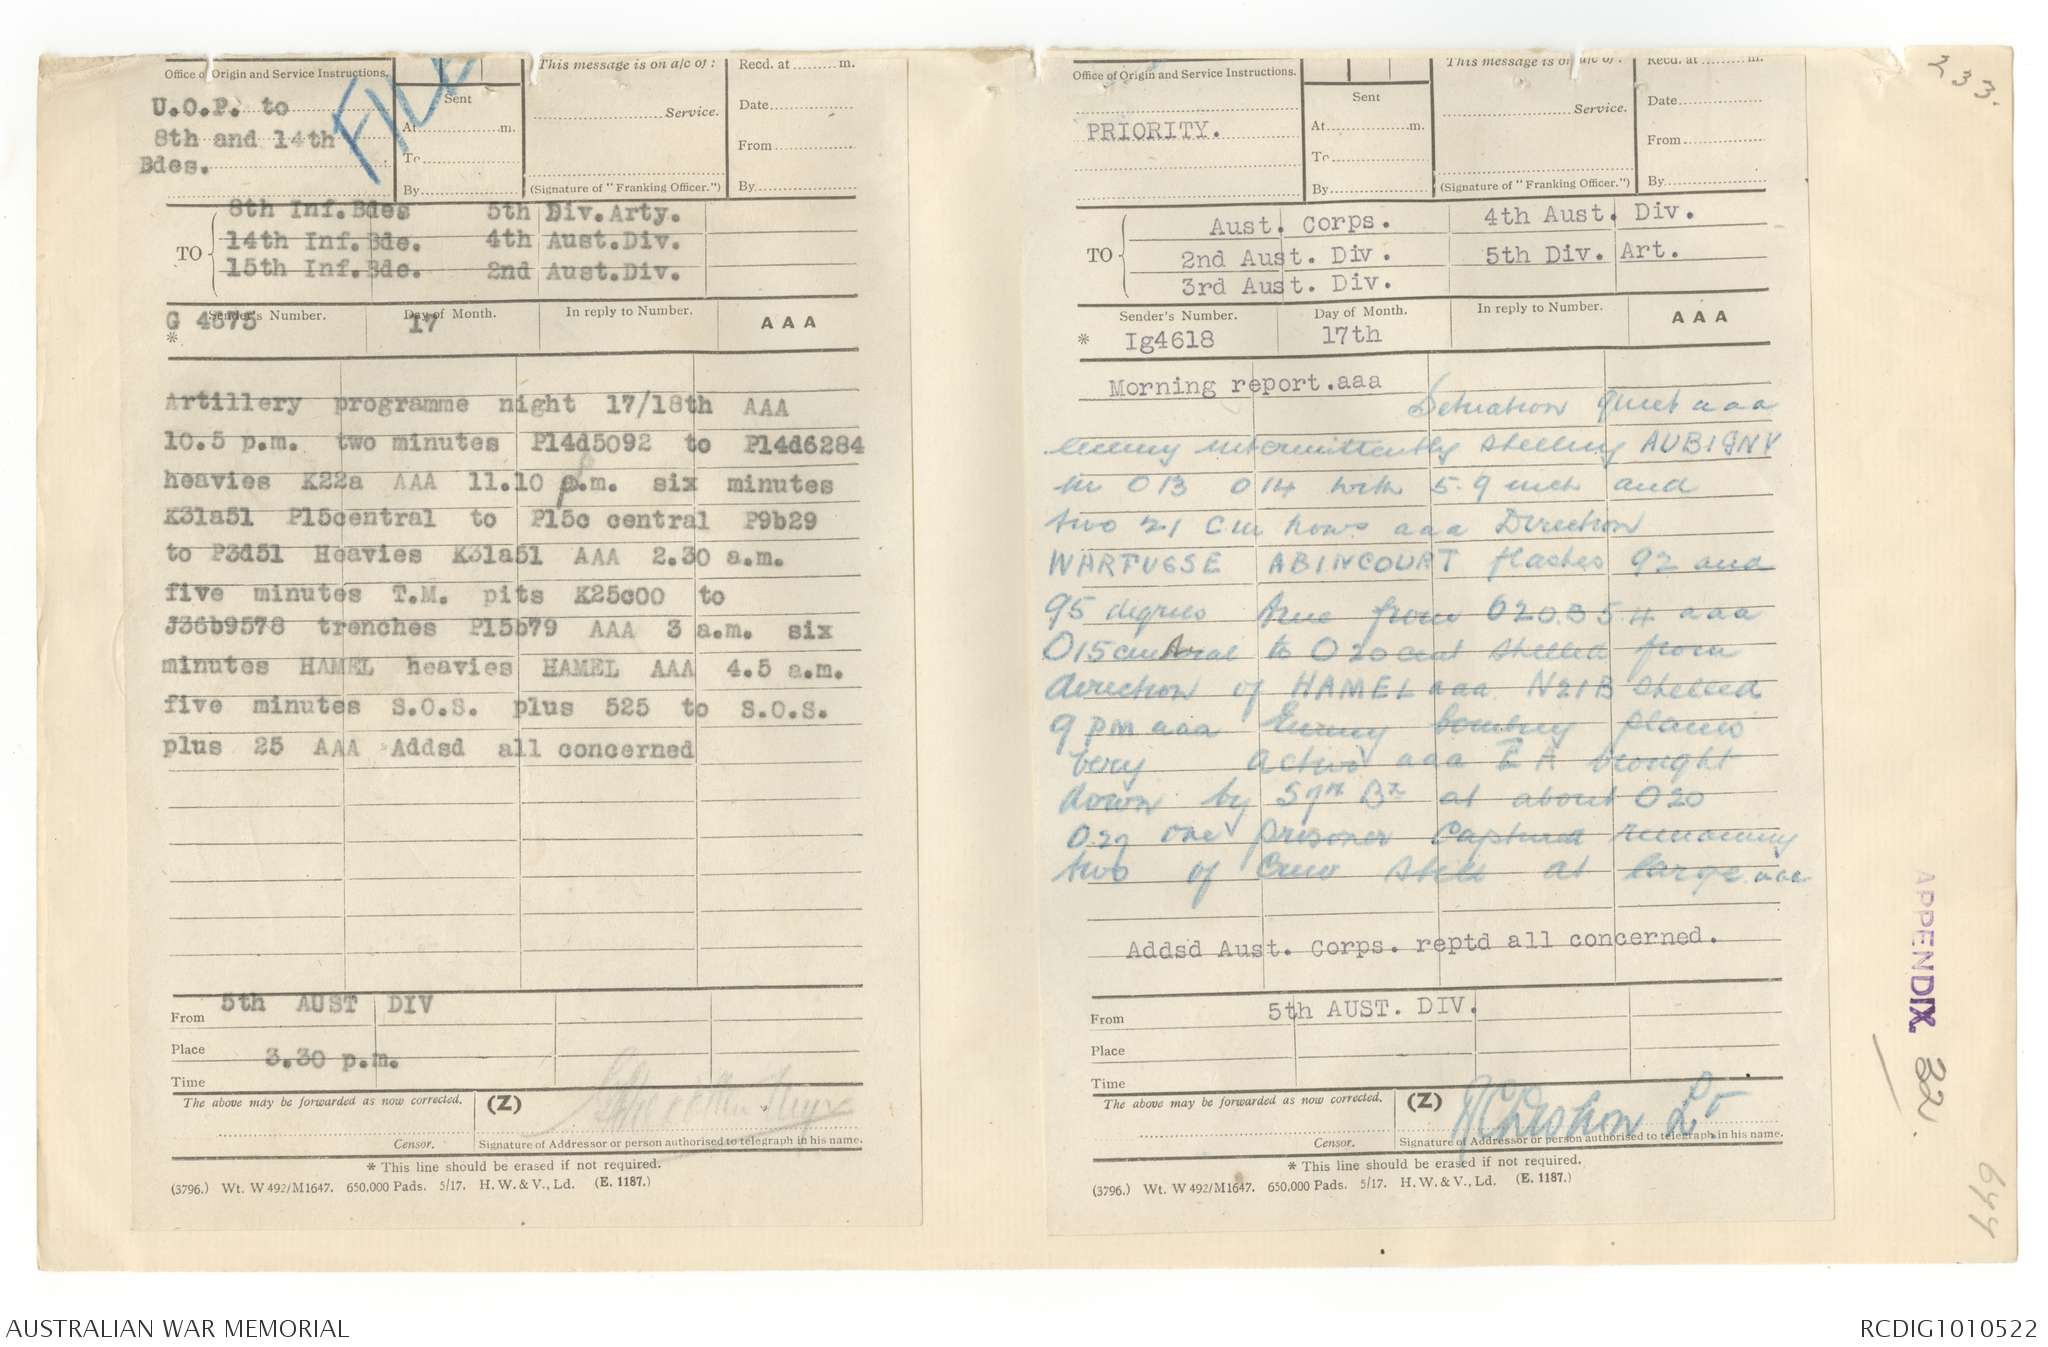 Office of Origin and Service Instructions.
U.O.P. to
8th and 14th
Bdes.
FILE
Sent
At..........m.
To
By
This message is on a/c of :
Service.
(Signature of "Franking Officer.")
Recd. at ......... m.
Date
From
By
TO
8th Inf.Bdes 5th Div.Arty.
14th Inf.Bde. 4th Aust.Div.
15th Inf.Bde. 2nd Aust.Div.
Sender's Number. Day of Month. In reply to Number. AAA
* G 4675 17
Artillery programme night 17/18th AAA
10.5 p.m. two minutes P14d5092 to P14d6284
heavies K22a AAA 11.10 p.m. six minutes
K31a51 P15central to P15c central P9b29
to P3d51 Heavies K31a51 AAA 2.30 a.m.
five minutes T.M. pits K25c00 to
J36b9578 trenches P15b79 AAA 3 a.m. six
minutes HAMEL heavies HAMEL AAA 4.5 a.m.
five minutes S.O.S. plus 525 to S.O.S.
plus 25 AAA Addsd all concerned
From 5th AUST DIV
Place
3.30 p.m.
Time
The above may be forwarded as now corrected. (Z)
Censor. Signature of Addressor or person authorised to telegraph in his name.
* This line should be erased if not required.
(3796.) Wt. W 492/M1647. 650,000 Pads. 5/17. H. W. & V., Ld. (E. 1187.)
233.
Office of Origin and Service Instructions.
PRIORITY.
Sent
At..........m.
To
By
This message is on a/c of :
Service.
(Signature of "Franking Officer.")
Recd. at ......... m.
Date
From
By
TO
Aust. Corps. 4th Aust. Div.
2nd Aust. Div. 5th Div. Art.
3rd Aust. Div.
Sender's Number. Day of Month. In reply to Number. AAA
* Ig4618 17th
Morning report.aaa
Situation quiet aaa
Enemy intermittently shelling AUBIGNY
in O13 O14 with 5.9 inch and
two 21 cm hows aaa Direction
WARFUSSE ABINCOURT flashes 92 and
95 degrees true from O20.B.5.4 aaa
O15 central to O20 cent shelled from
direction of HAMEL aaa N21B shelled
9 pm aaa Enemy bombing planes
very active aaa EA brought
down by 57th Bn at about O20
O27 one prisoner captured remaining
two of crew still at large aaa
Addsd Aust. Corps. reptd all concerned.
From 5th AUST. DIV.
Place
Time
The above may be forwarded as now corrected. (Z)
Lt
Censor. Signature of Addressor or person authorised to telegraph in his name.
* This line should be erased if not required.
(3796.) Wt. W 492/M1647. 650,000 Pads. 5/17. H. W. & V., Ld. (E. 1187.)
APPENDIX. 32.
644
AUSTRALIAN WAR MEMORIAL
RCDIG1010522